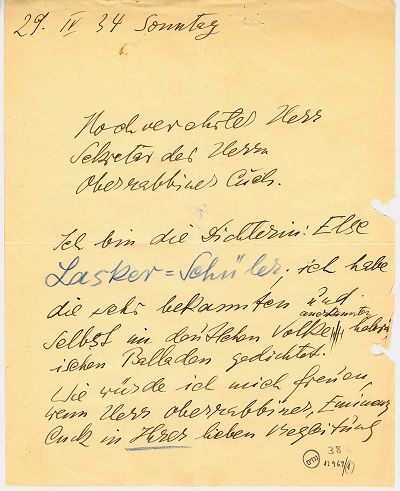 29. IV 34 Sonntag
Hochverehrter Herr
Sekretär des Herrn
Oberrabbiner Cuck.
Ich bin die Dichterin: Else
Lasker=Schüler, ich habe
die sehr bekannten und
anerkannten
selbst im deutschen Volke hebrä
ischen Balladen gedichtet.
Wie würde ich mich freuen,
wenn Herr Oberrabbiner, Eminenz
Cuck in Ihrer lieben Begleitung
38